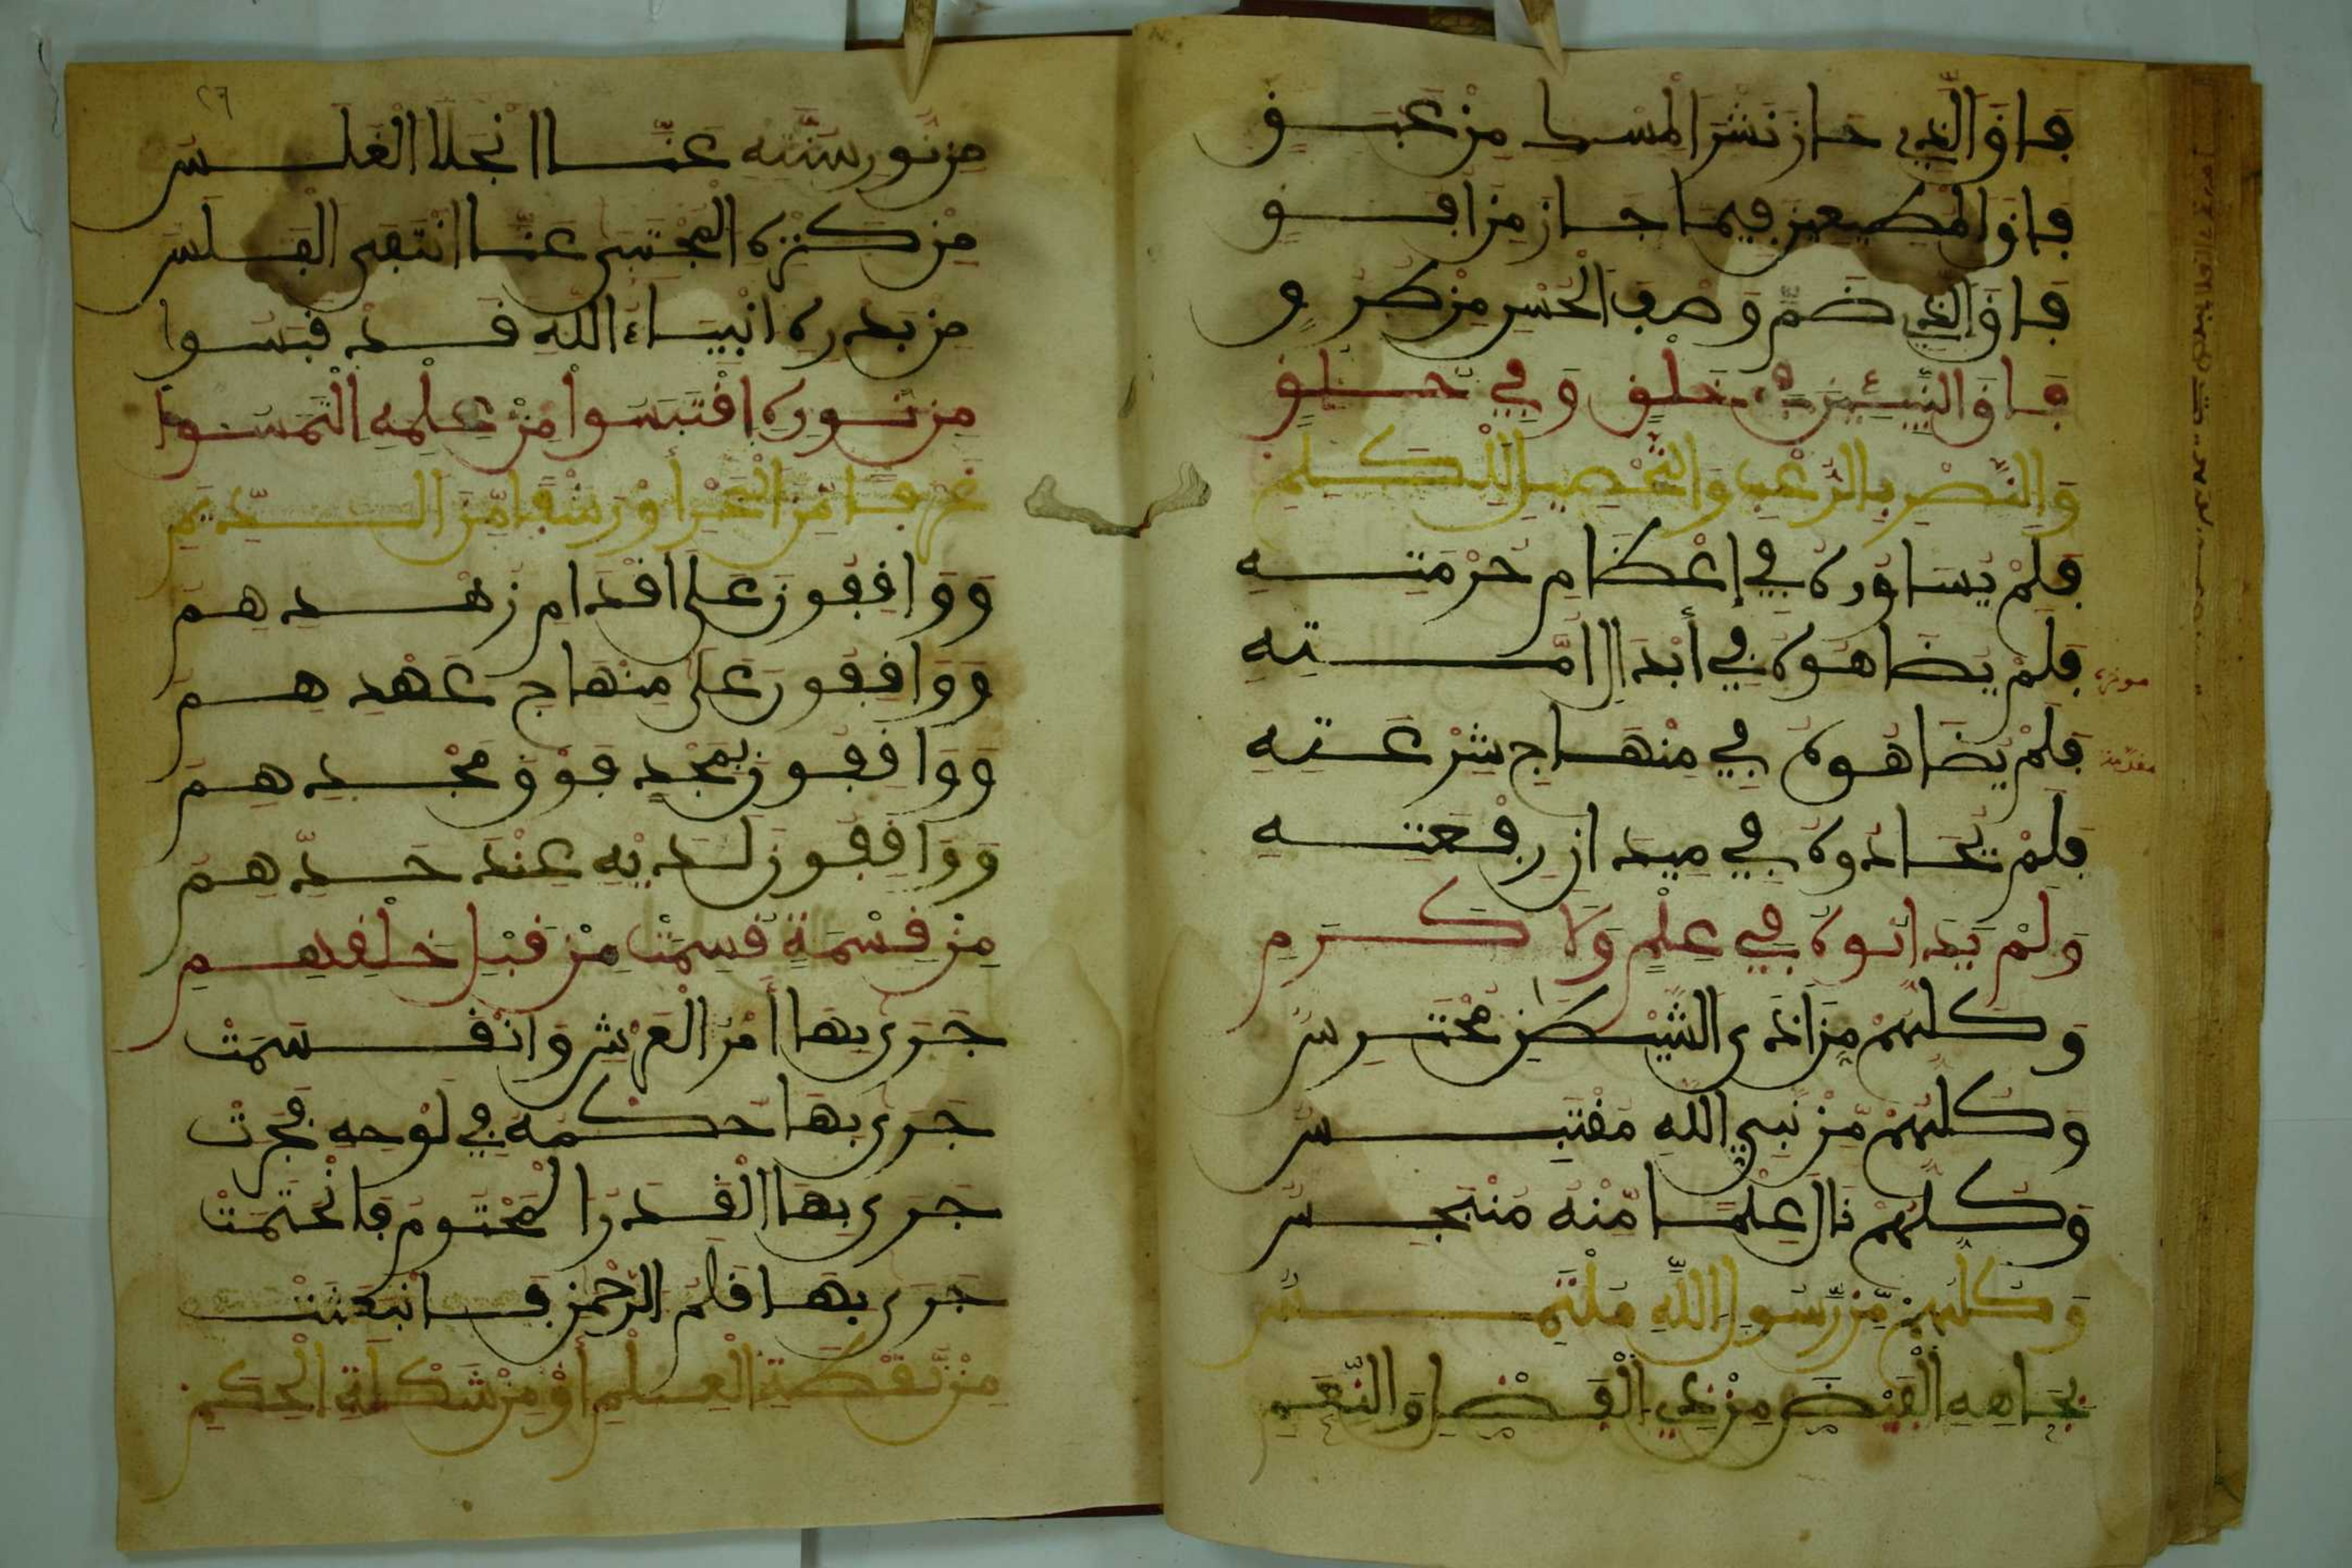 فاق الذي حاز نشر المسك من عبق
فاق المطيعين فيما جاز من افق
فاق الذي ضم وصف الحسن من طرق
فاق النبيئين في خلق وفي خلق
والنصر بالرعب والتخصيص للكلم
فلم يساووه في إعظام حرمته
فلم يضاهوه في أبدال امته
موخر
فلم يضاهوه في منهاج شرعته
مقدم
فلم يحاذوه في ميدان رفعته
ولم يدانوه في علم ولا كرم
وكلهم من اذى الشيطن محترس
وكلهم من نبي الله مقتبس
وكلهم نال علما منه منبجس
وكلهم من رسول الله ملتمس
بجاهه الفيض من ذي الفضل والنعم
٢٦
من نور سنته عنا انجلا الغلس
من كنزه المجتبى عنا انتفى الفلس
من بدره انبياء الله قد قبسوا
من نوره اقتبسوا من علمه التمسوا
غرفا من البحر أو رشفا من الديم
ووافقون على اقدام زهدهم
ووافقون على منهاج عهدهم
ووافقون بمجد فوق مجدهم
ووافقون لديه عند حدهم
من قسمة قسمت من قبل خلقهم
جرى بها أمر العرش وانقسمت
جرى بها حكمه في لوحه فجرت
جرى بها القدر المحتوم فانحتمت
جرى بها قلم الرحمن فانبعثت
من نقطة العلم أو من شكلة الحكم